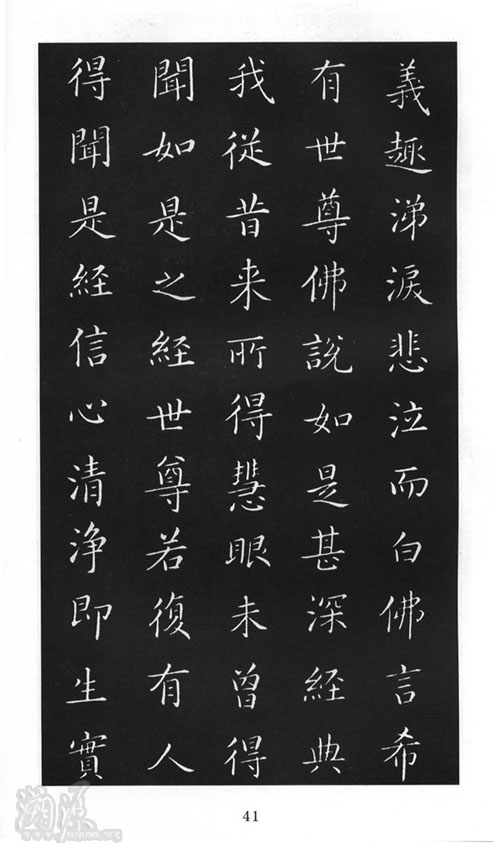 義趣涕淚悲泣而白佛言希
有世尊佛說如是甚深經典
我從昔来所得慧眼未曾得
聞如是之經世尊若復有人
得聞是經信心清淨即生實
41